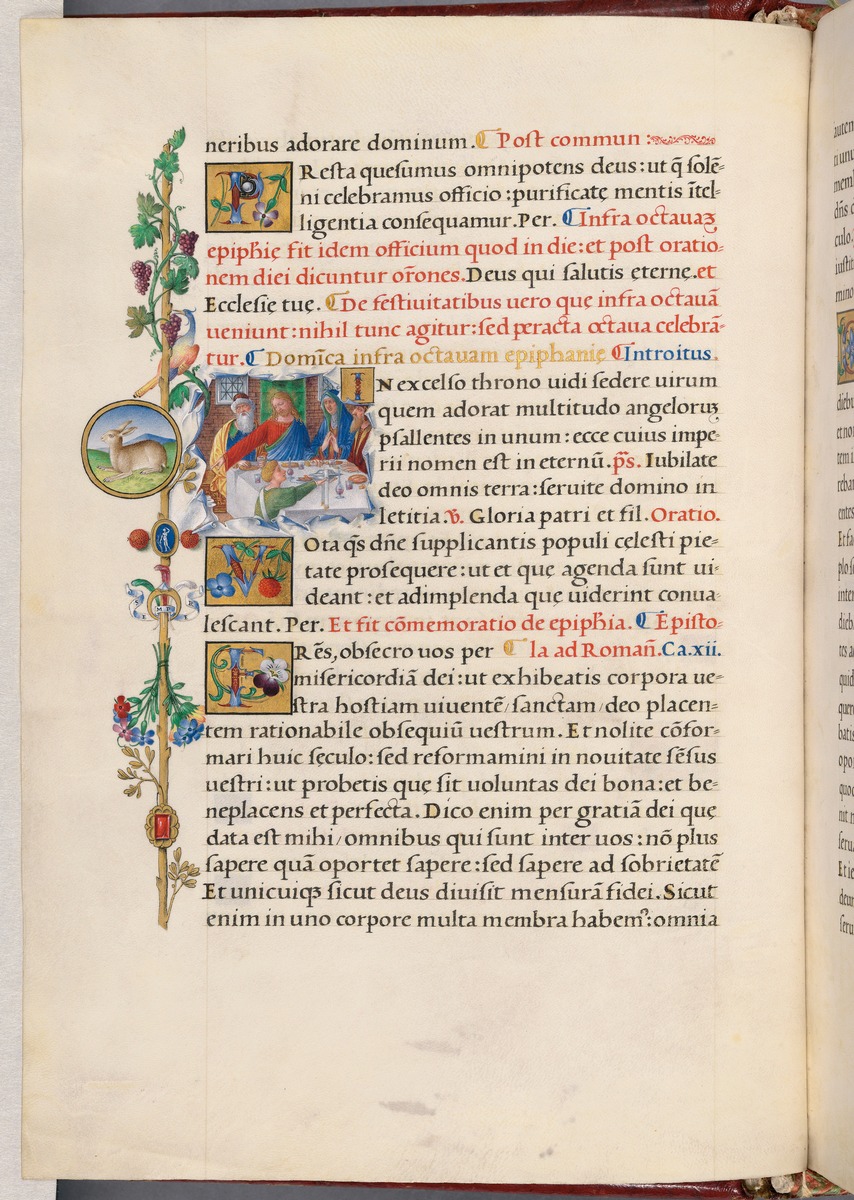 neribus adorare dominum. Post commun :
PResta quesumus omnipotens deus: ut q̃ solẽ-
ni celebramus officio: purificatę mentis ĩtel-
ligentia consequamur. Per. Infra octauaꝫ
epiphię fit idem officium quod in die: et post oratio-
nem diei dicuntur orõnes. Deus qui salutis eternę. et
Ecclesię tuę. De festiuitatibus uero quę infra octauã
ueniunt: nihil tunc agitur: sed peracta octaua celebrã-
tur. Domĩca infra octauam epiphanię Introitus.
IN excelso throno uidi sedere uirum
quem adorat multitudo angeloruꝫ
psallentes in unum: ecce cuius impe-
rii nomen est in eternũ. p̃s. Iubilate
deo omnis terra: seruite domino in
letitia. ℣. Gloria patri et fil. Oratio.
VOta q̃s dñe supplicantis populi cęlesti pie-
tate prosequere: ut et quę agenda sunt ui-
deant: et adimplenda quę uiderint conua-
lescant. Per. Et fit cõmemoratio de epiphia. Episto-
FRẽs, obsecro uos per la ad Romañ. Ca. xii.
misericordiã dei: ut exhibeatis corpora ue-
stra hostiam uiuentẽ/ sanctam/ deo placen-
tem rationabile obsequiũ uestrum. Et nolite cõfor-
mari huic sęculo: sed reformamini in nouitate sẽsus
uestri: ut probetis quę sit uoluntas dei bona: et be-
neplacens et perfecta. Dico enim per gratiã dei quę
data est mihi/ omnibus qui sunt inter uos: nõ plus
sapere quã oportet sapere: sed sapere ad sobrietatẽ
Et unicuiqꝫ sicut deus diuisit mensurã fidei. Sicut
enim in uno corpore multa membra habemꝰ: omnia